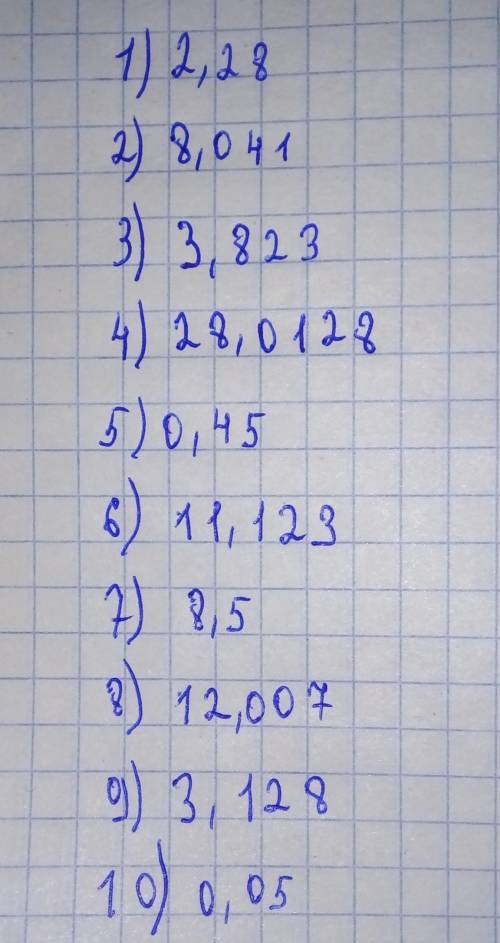 1) 2,28
2) 8,041
3) 3,823
4) 28,0128
5) 0,45
6) 11,123
7) 8,5
8) 12,007
9) 3,128
10) 0,05